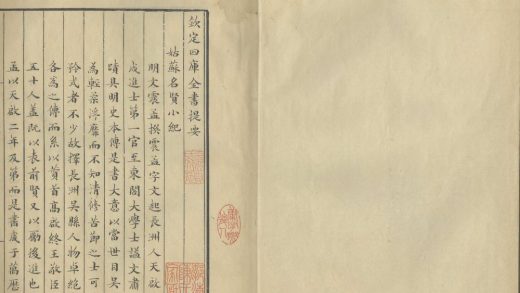 欽定四庫全書提要
姑蘇名賢小紀
明文震孟撰震孟字文起長洲人天啟
成進士第一官至東閣大學士諡文肅
蹟具明史本傳是書大意以當世目吳
為輕柔浮靡而不知清修苦節之士可
矜式者不少故擇長洲吳縣人物卓絶
各為之傳而系以贊首高啟終王敬臣
五十人蓋既以表前賢又以勵後進也
孟以天啟二年及第而是書成于萬歷